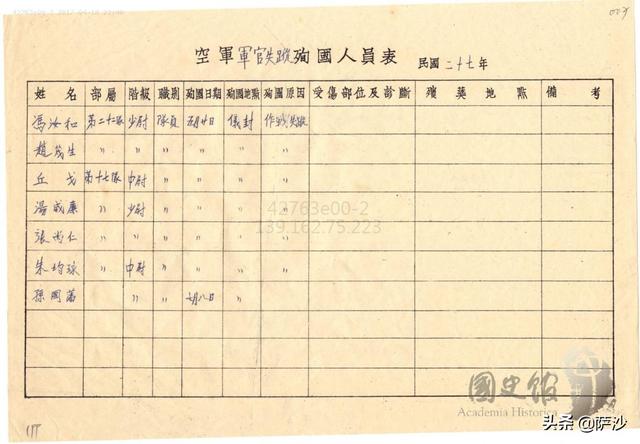 空軍軍官失蹤殉國人員表 民國二十七年
姓名 部屬 階級 職別 殉國日期 殉國地點 殉國原因 受傷部位及診斷 殯葬地點 備考
馮汝和 第二十二隊 少尉 隊員 五月廿日 儀封 作戰失蹤
趙茂生 〃 〃 〃 〃 〃 〃
丘戈 第十七隊 中尉 〃 〃 〃 〃
湯威廉 〃 少尉 〃 〃 〃 〃
張尚仁 〃 〃 〃 〃 〃 〃
朱均球 〃 中尉 〃 〃 〃 〃
孫國藩 〃 〃 七月八日 〃
42763e00-2
139.162.75.223
國史館
Academia Historica
头条 @萨沙